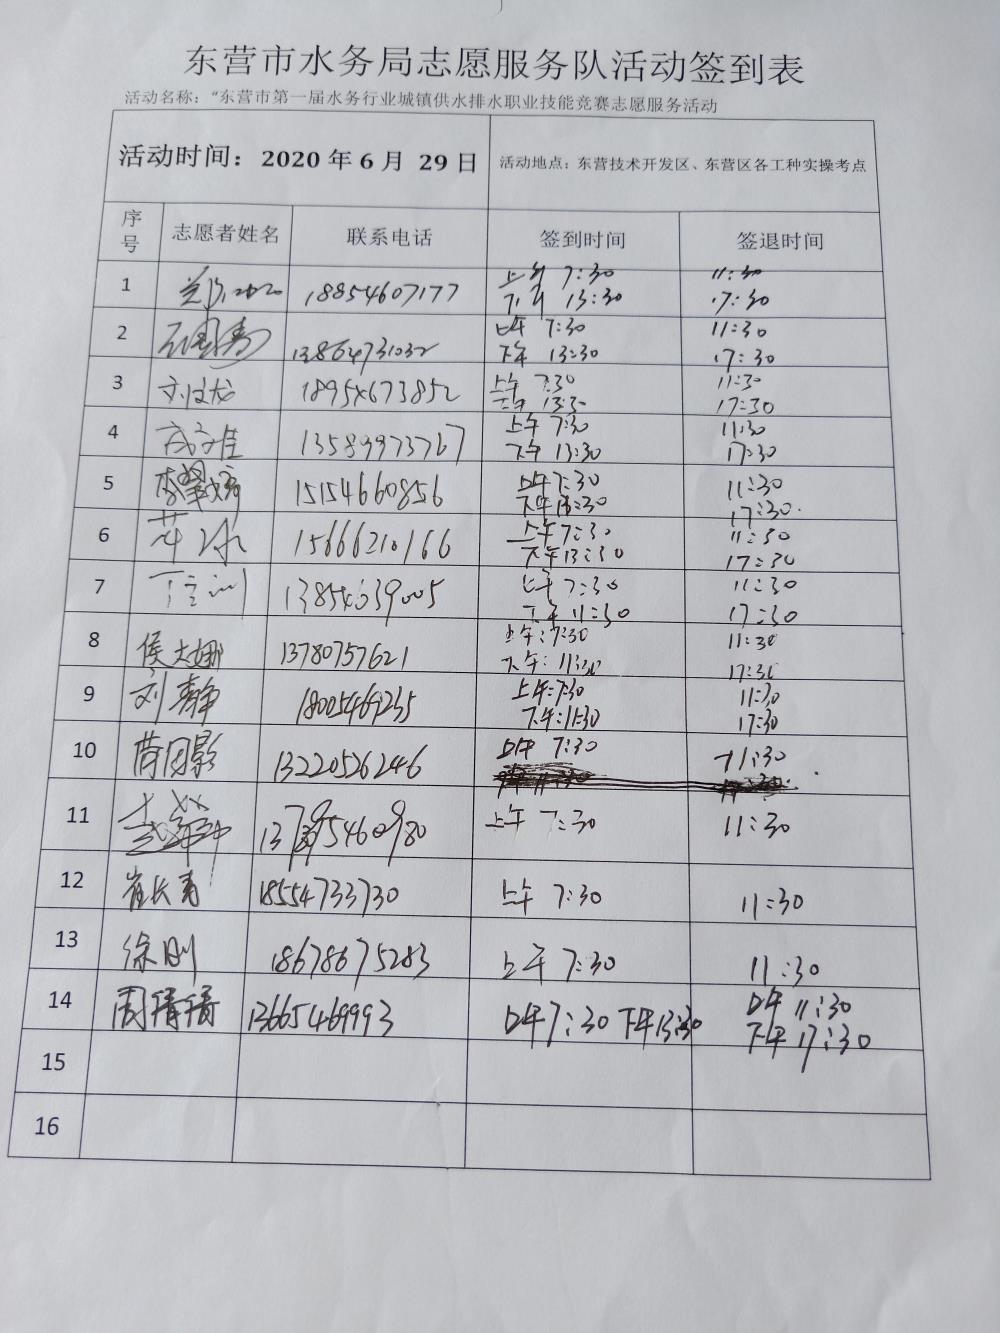 东营市水务局志愿服务队活动签到表
活动名称：“东营市第一届水务行业城镇供水排水职业技能竞赛志愿服务活动
活动时间：2020 年 6 月 29 日 活动地点：东营技术开发区、东营区各工种实操考点
序号 志愿者姓名 联系电话 签到时间 签退时间
1 18854607177 上午 7:30 11:30
下午 13:30 17:30
2 13864731032 上午 7:30 11:30
下午 13:30 17:30
3 18954673852 上午 7:30 11:30
下午 13:30 17:30
4 13589973767 上午 7:30 11:30
下午 13:30 17:30
5 15154660856 上午 7:30 11:30
下午 13:30 17:30
6 15666210166 上午 7:30 11:30
下午 13:30 17:30
7 13854639005 上午 7:30 11:30
下午 11:30 17:30
8 侯大娜 13780757621 上午: 7:30 11:30
下午: 11:30 17:30
9 刘静 18005469235 上午: 7:30 11:30
下午: 11:30 17:30
10 13220526246 上午 7:30 11:30
11 上午 7:30 11:30
12 崔长青 18554733730 上午 7:30 11:30
13 徐刚 18678675283 上午 7:30 11:30
14 周倩倩 13665469993 上午 7:30 下午 13:30 上午 11:30
下午 17:30
15
16